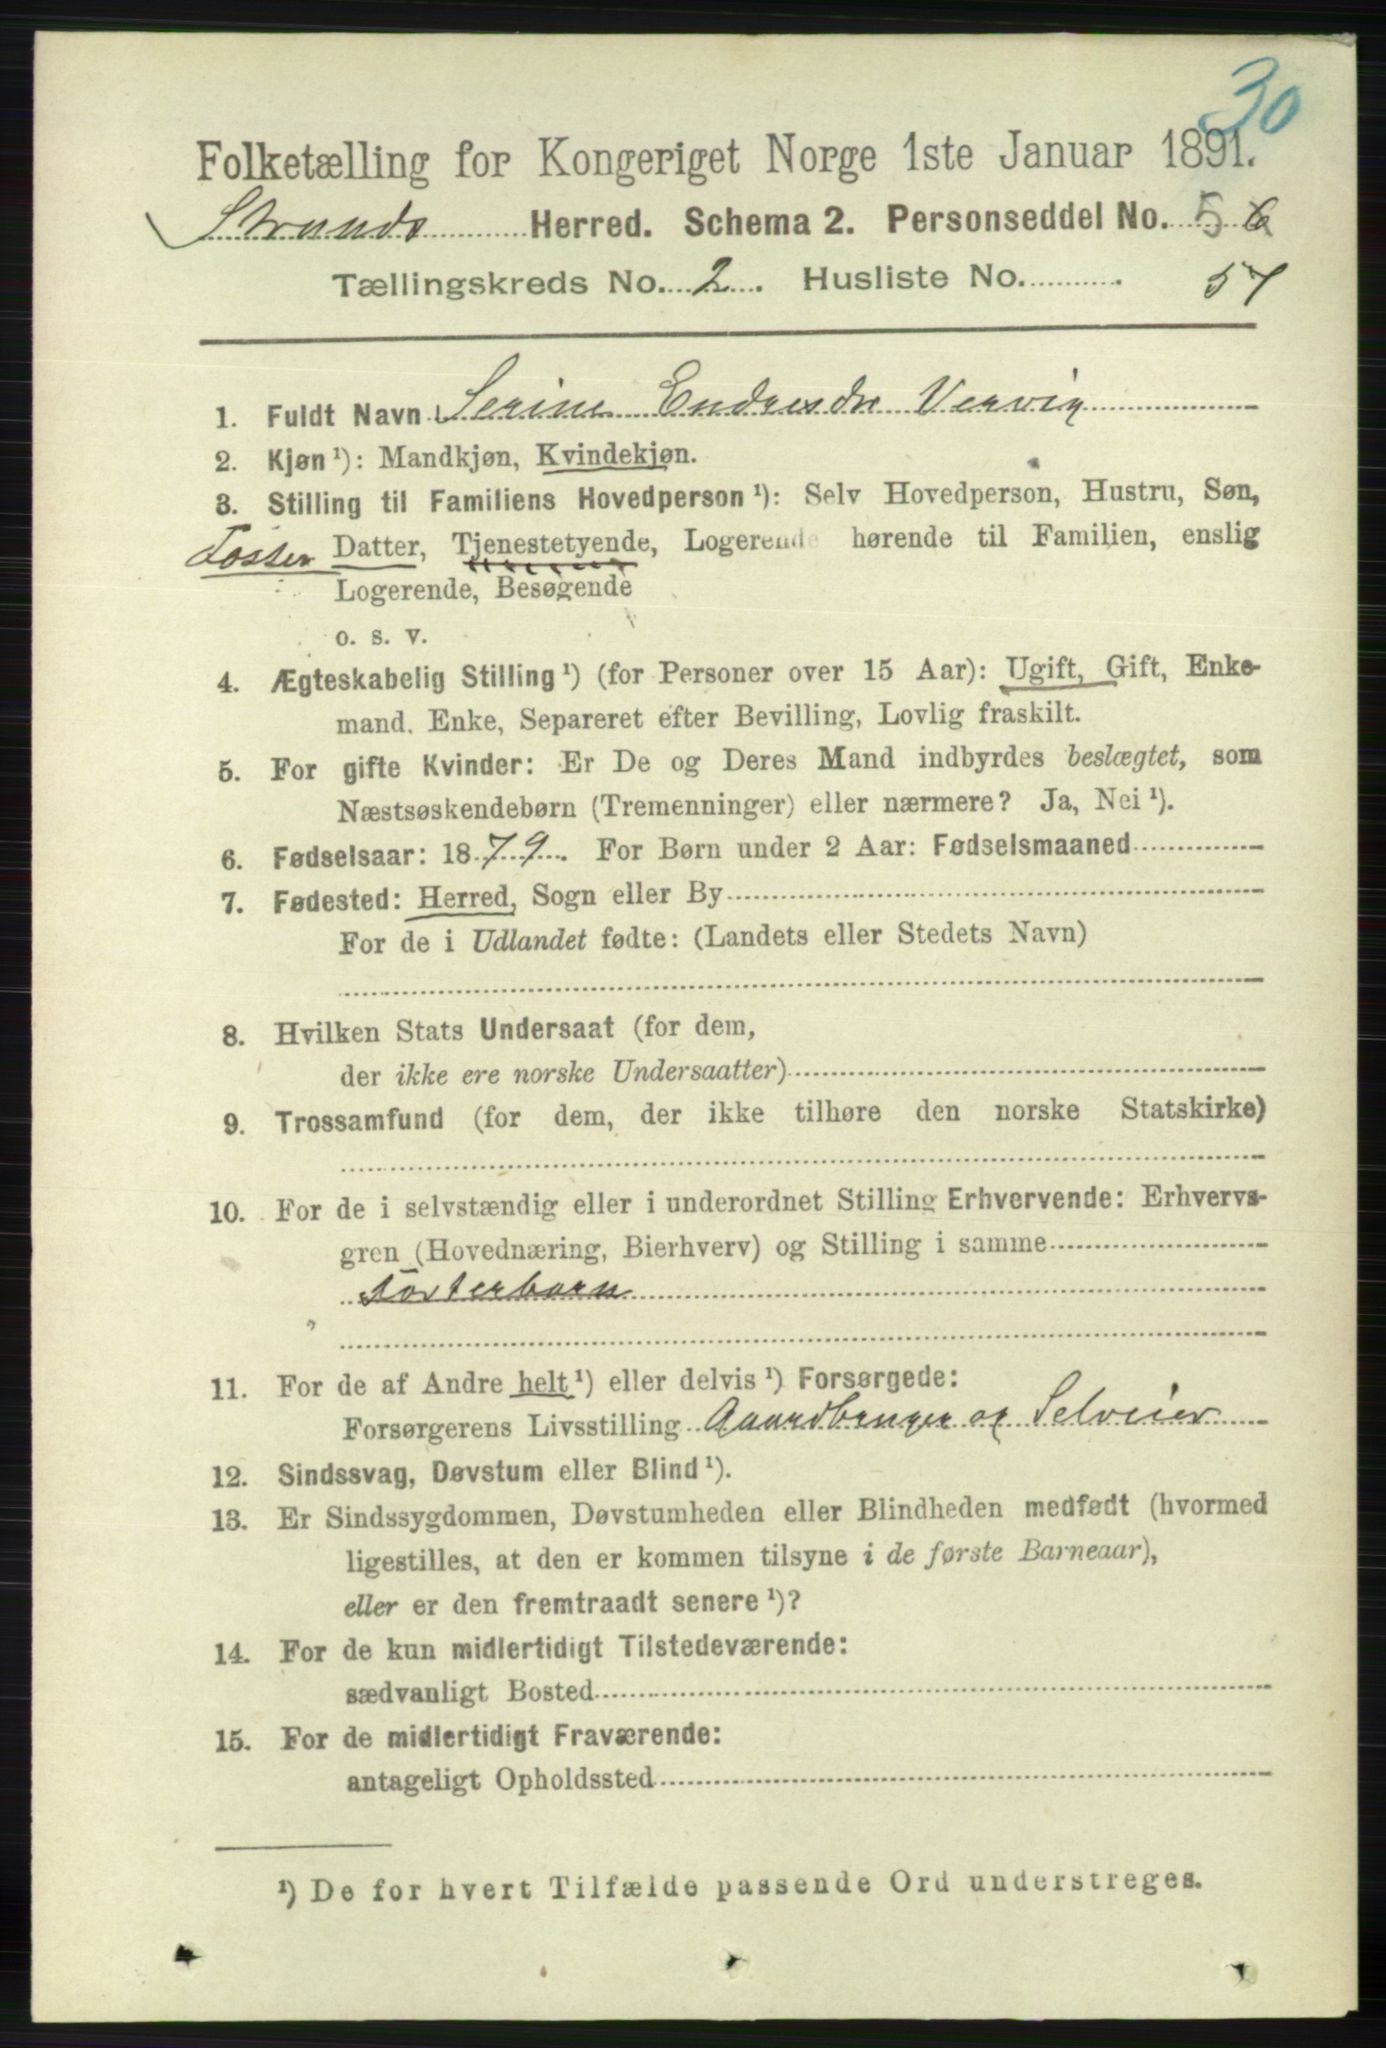 30
Folketælling for Kongeriget Norge 1ste Januar 1891.
Strands Herred. Schema 2. Personseddel No. 5 6
Tællingskreds No. 2. Husliste No. 57
1. Fuldt Navn Serine Endresdr Vervig
2. Kjøn ¹): Mandkjøn, Kvindekjøn.
3. Stilling til Familiens Hovedperson ¹): Selv Hovedperson, Hustru, Søn,
Foster Datter, Tjenestetyende, Logerende hørende til Familien, enslig
Logerende, Besøgende
o. s. v.
4. Ægteskabelig Stilling ¹) (for Personer over 15 Aar): Ugift, Gift, Enke-
mand. Enke, Separeret efter Bevilling, Lovlig fraskilt.
5. For gifte Kvinder: Er De og Deres Mand indbyrdes beslægtet, som
Næstsøskendebørn (Tremenninger) eller nærmere? Ja, Nei ¹).
6. Fødselsaar: 1879. For Børn under 2 Aar: Fødselsmaaned
7. Fødested: Herred, Sogn eller By
For de i Udlandet fødte: (Landets eller Stedets Navn)
8. Hvilken Stats Undersaat (for dem,
der ikke ere norske Undersaatter)
9. Trossamfund (for dem, der ikke tilhøre den norske Statskirke)
10. For de i selvstændig eller i underordnet Stilling Erhvervende: Erhvervs-
gren (Hovednæring, Bierhverv) og Stilling i samme
Fosterbarn
11. For de af Andre helt ¹) eller delvis ¹) Forsørgede:
Forsørgerens Livsstilling Gaardbruger og Selveier
12. Sindssvag, Døvstum eller Blind ¹).
13. Er Sindssygdommen, Døvstumheden eller Blindheden medfødt (hvormed
ligestilles, at den er kommen tilsyne i de første Barneaar),
eller er den fremtraadt senere ¹)?
14. For de kun midlertidigt Tilstedeværende:
sædvanligt Bosted
15. For de midlertidigt Fraværende:
antageligt Opholdssted
¹) De for hvert Tilfælde passende Ord understreges.